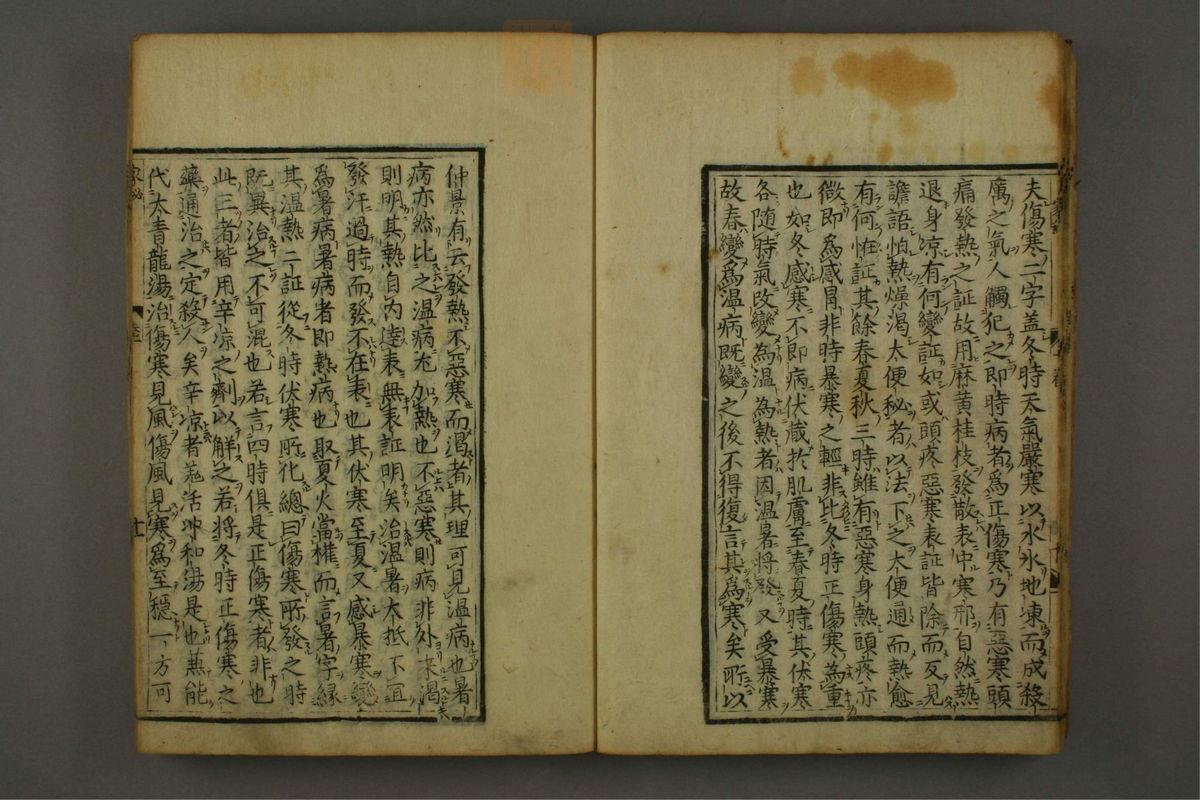 夫傷寒二字盖冬時天氣嚴寒以水氷地凍而成殺
厲之氣人觸犯之即時病者爲正傷寒乃有惡寒頭
痛發熱之証故用麻黄桂枝發散表中寒邪自然熱
退身凉有何變証如或頭疼惡寒表証皆除而反見
譫語怕熱燥渇大便秘者以法下之大便通而熱愈
有何怪証其餘春夏秋三時雖有惡寒身熱頭疼亦
微即爲感冒非時暴寒之輕非比冬時正傷寒為重
也如冬感寒不即病伏藏於肌膚至春夏時其伏寒
各随時氣改變為温為熱者因温暑将發又受暴寒
故春變爲温病既變之後不得復言其爲寒矣所以
仲景有云發熱不惡寒而渇者其理可見温病也暑
病亦然比之温病尤加熱也不惡寒則病非外来渇
則明其熱自内達表無表証明矣治温暑大抵不宜
發汗過時而發不在表也其伏寒至夏又感暴寒變
爲暑病暑病者即熱病也取夏火當權而言暑字縁
其温熱二証從冬時伏寒所化總曰傷寒所發之時
既異治之不可混也若言四時俱是正傷寒者非也
此三者皆用辛凉之劑以解之若将冬時正傷寒之
藥通治之定殺人矣辛凉者羗活冲和湯是也兼能
代大青龍湯治傷寒見風傷風見寒爲至穩一方可